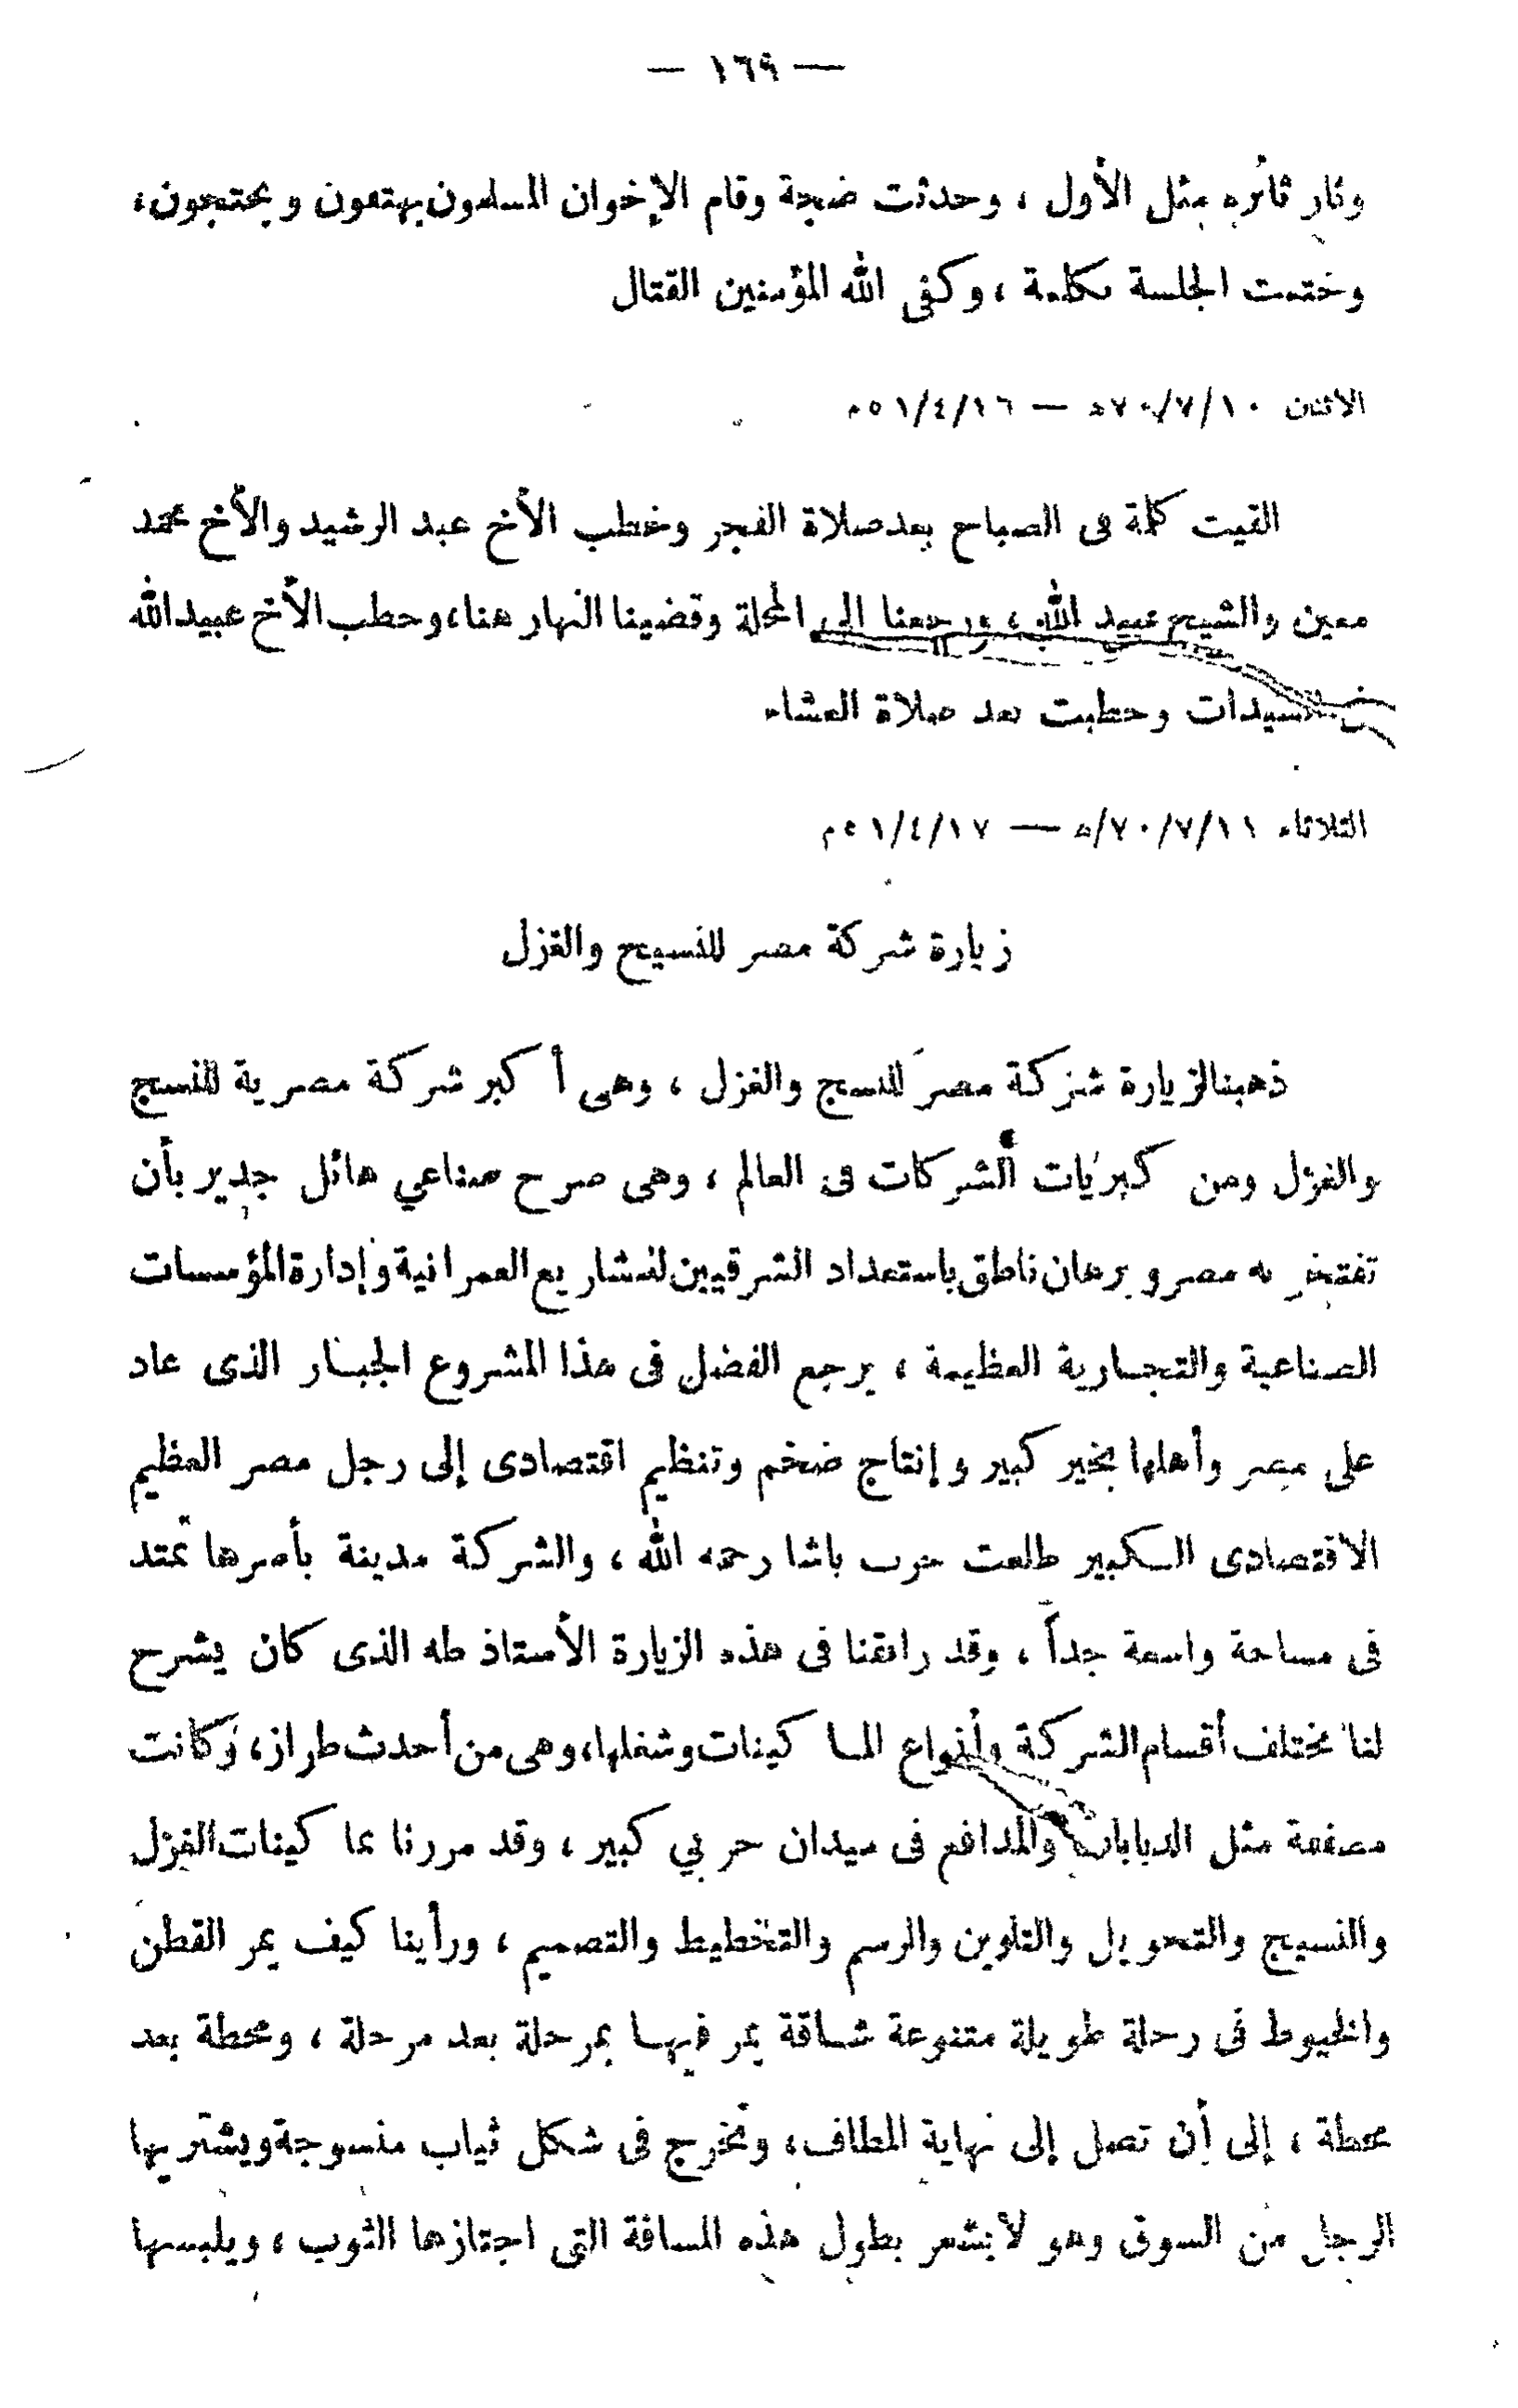 — ١٦٩ —
وثار ثائره مثل الأول ، وحدثت ضجة وقام الإخوان المسلمون يهتفون ويحتجون ،
وختمت الجلسة بكلمة ، وكفى الله المؤمنين القتال
الاثنين ٧٠/٧/١٠ھ — ٥١/٤/١٦م
القيت كلمة فى الصباح بعد صلاة الفجر وخطب الأخ عبد الرشيد والأخ محمد
معين والشيخ عبيد الله ، ورجعنا الى المحلة وقضينا النهار هنا ، وخطب الأخ عبيد الله
فى السيدات وخطبت بعد صلاة العشاء
الثلاثاء ٧٠/٧/١١/ھ — ٥١/٤/١٧م
زيارة شركة مصر للنسيج والغزل
ذهبنا لزيارة شركة مصر للنسج والغزل ، وهى أكبر شركة مصرية للنسج
والغزل ومن كبريات الشركات فى العالم ، وهى صرح صناعي هائل جدير بأن
تفتخر به مصر وبرهان ناطق باستعداد الشرقيين للمشاريع العمرانية وإدارة المؤسسات
الصناعية والتجارية العظيمة ، يرجع الفضل فى هذا المشروع الجبار الذى عاد
على مصر وأهلها بخير كبير وإنتاج ضخم وتنظيم اقتصادى إلى رجل مصر العظيم
الاقتصادى الكبير طلعت حرب باشا رحمه الله ، والشركة مدينة بأسرها تمتد
فى مساحة واسعة جداً ، وقد رافقنا فى هذه الزيارة الأستاذ طه الذى كان يشرح
لنا مختلف أقسام الشركة وأنواع الماكينات وشغلها ، وهى من أحدث طراز ، وكانت
مصفمة مثل الدبابات والمدافع فى ميدان حربي كبير ، وقد مررنا بماكينات الغزل
والنسيج والتحويل والتلوين والرسم والتخطيط والتصميم ، ورأينا كيف يمر القطن
والخيوط فى رحلة طويلة متنوعة شاقة يمر فيها بمرحلة بعد مرحلة ، ومحطة بعد
محطة ، إلى أن تصل إلى نهاية المطاف ، وتخرج فى شكل ثياب منسوجة ويشتريها
الرجل من السوق وهو لا يشعر بطول هذه المسافة التى اجتازها الثوب ، ويلبسها